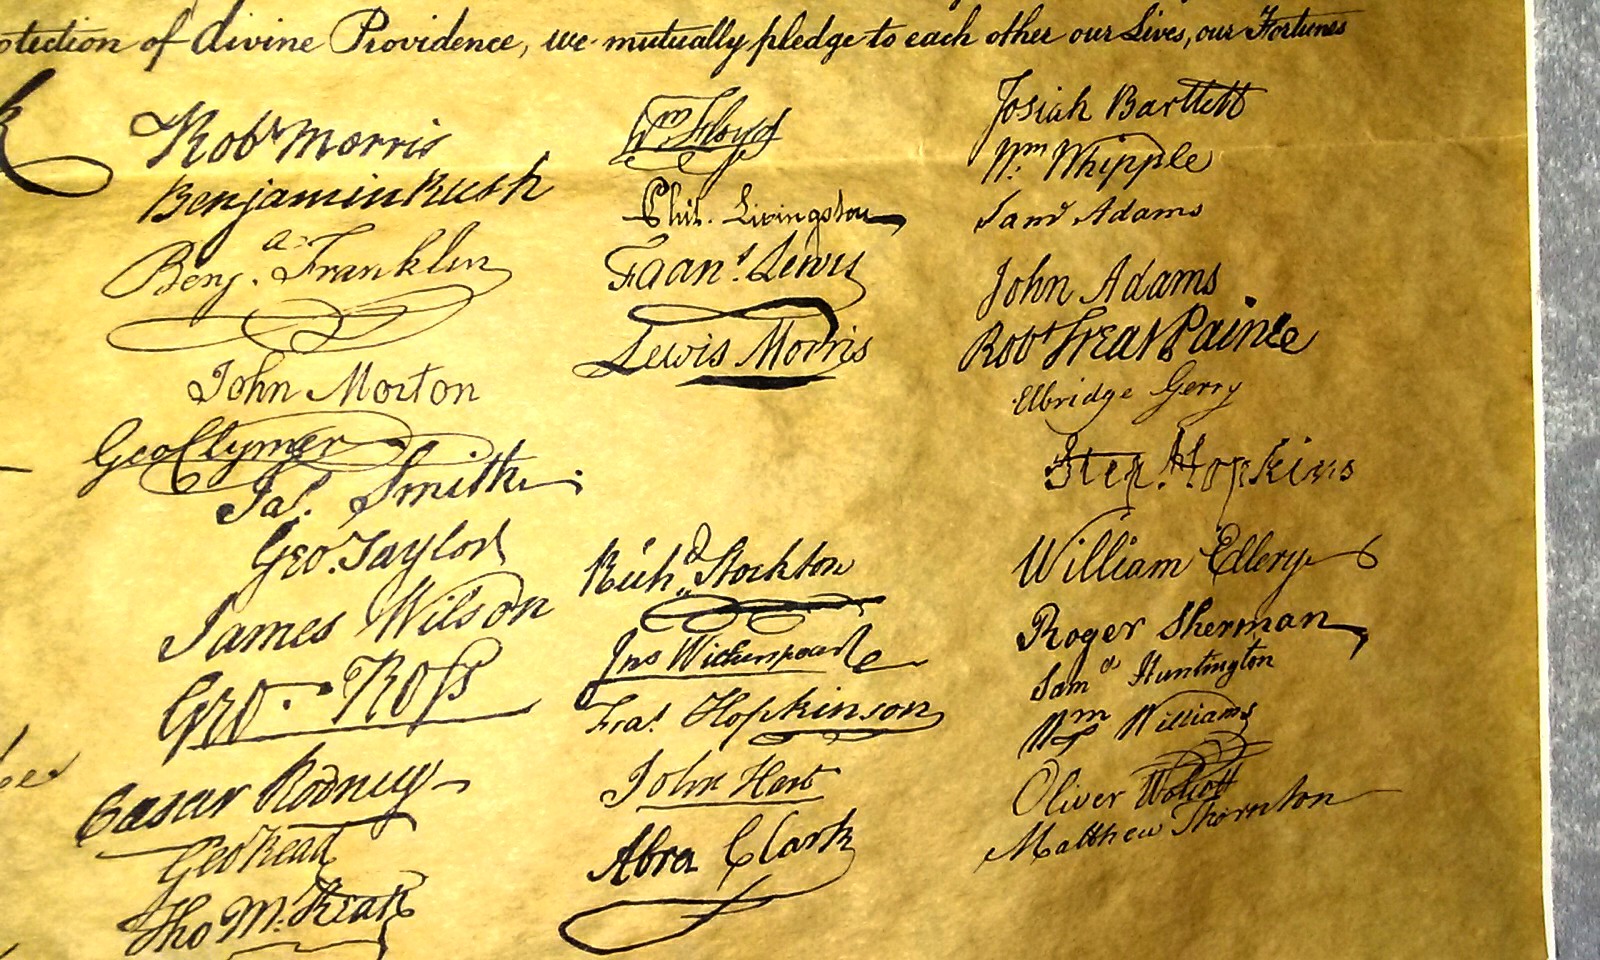 otection of divine Providence, we mutually pledge to each other our Lives, our Fortunes
Robt Morris
Benjamin Rush
Benja. Franklin
John Morton
Geo Clymer
Jas. Smith
Geo. Taylor
James Wilson
Geo. Ross
Caesar Rodney
Geo Read
Tho M:Kean
Wm Floyd
Phil. Livingston
Frans. Lewis
Lewis Morris
Richd. Stockton
Jno Witherspoon
Fras. Hopkinson
John Hart
Abra Clark
Josiah Bartlett
Wm. Whipple
Saml Adams
John Adams
Robt Treat Paine
Elbridge Gerry
Step. Hopkins
William Ellery
Roger Sherman
Saml Huntington
Wm Williams
Oliver Wolcott
Matthew Thornton